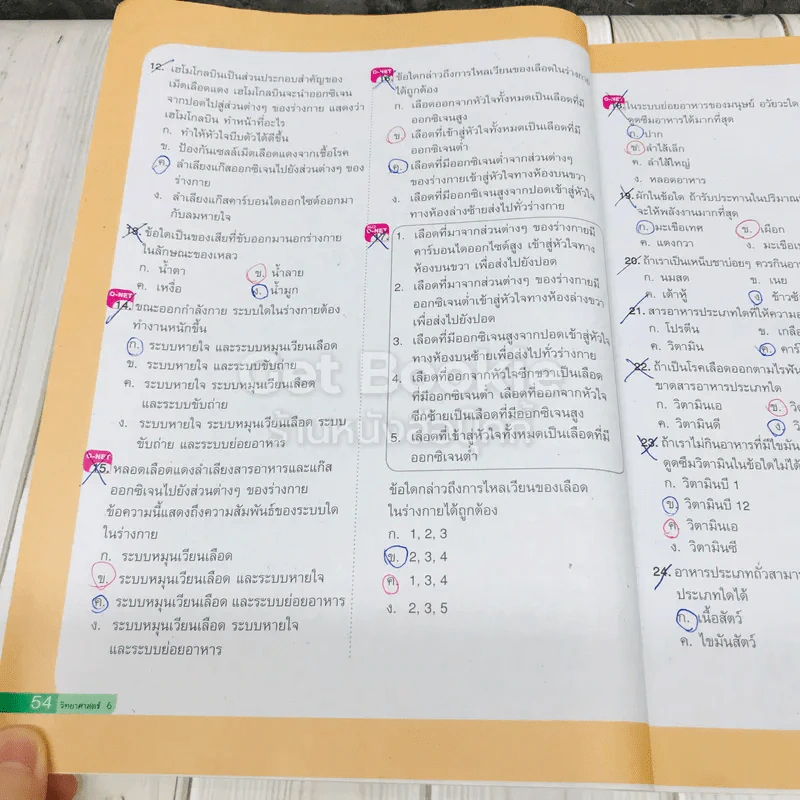 12. เฮโมโกลบินเป็นส่วนประกอบสำคัญของ
เม็ดเลือดแดง เฮโมโกลบินจะนำออกซิเจน
จากปอดไปสู่ส่วนต่างๆ ของร่างกาย แสดงว่า
เฮโมโกลบิน ทำหน้าที่อะไร
ก. ทำให้หัวใจบีบตัวได้ดีขึ้น
ข. ป้องกันเซลล์เม็ดเลือดแดงจากเชื้อโรค
ค. ลำเลียงแก๊สออกซิเจนไปยังส่วนต่างๆ ของ
ร่างกาย
ง. ลำเลียงแก๊สคาร์บอนไดออกไซด์ออกมา
กับลมหายใจ
13. ข้อใดเป็นของเสียที่ขับออกมานอกร่างกาย
ในลักษณะของเหลว
ก. น้ำตา ข. น้ำลาย
ค. เหงื่อ ง. น้ำมูก
O-NET
14. ขณะออกกำลังกาย ระบบใดในร่างกายต้อง
ทำงานหนักขึ้น
ก. ระบบหายใจ และระบบหมุนเวียนเลือด
ข. ระบบหายใจ และระบบขับถ่าย
ค. ระบบหายใจ ระบบหมุนเวียนเลือด
และระบบขับถ่าย
ง. ระบบหายใจ ระบบหมุนเวียนเลือด ระบบ
ขับถ่าย และระบบย่อยอาหาร
O-NET
15. หลอดเลือดแดงลำเลียงสารอาหารและแก๊ส
ออกซิเจนไปยังส่วนต่างๆ ของร่างกาย
ข้อความนี้แสดงถึงความสัมพันธ์ของระบบใด
ในร่างกาย
ก. ระบบหมุนเวียนเลือด
ข. ระบบหมุนเวียนเลือด และระบบหายใจ
ค. ระบบหมุนเวียนเลือด และระบบย่อยอาหาร
ง. ระบบหมุนเวียนเลือด ระบบหายใจ
และระบบย่อยอาหาร
54 วิทยาศาสตร์ 6
O-NET
16. ข้อใดกล่าวถึงการไหลเวียนของเลือดในร่างกาย
ได้ถูกต้อง
ก. เลือดออกจากหัวใจทั้งหมดเป็นเลือดที่มี
ออกซิเจนสูง
ข. เลือดที่เข้าสู่หัวใจทั้งหมดเป็นเลือดที่มี
ออกซิเจนต่ำ
ค. เลือดที่มีออกซิเจนต่ำจากส่วนต่างๆ
ของร่างกายเข้าสู่หัวใจทางห้องบนขวา
ง. เลือดที่มีออกซิเจนสูงจากปอดเข้าสู่หัวใจ
ทางห้องล่างซ้ายส่งไปทั่วร่างกาย
O-NET
17.
1. เลือดที่มาจากส่วนต่างๆ ของร่างกายมี
คาร์บอนไดออกไซด์สูง เข้าสู่หัวใจทาง
ห้องบนขวา เพื่อส่งไปยังปอด
2. เลือดที่มาจากส่วนต่างๆ ของร่างกายมี
ออกซิเจนต่ำเข้าสู่หัวใจทางห้องล่างขวา
เพื่อส่งไปยังปอด
3. เลือดที่มีออกซิเจนสูงจากปอดเข้าสู่หัวใจ
ทางห้องบนซ้ายเพื่อส่งไปทั่วร่างกาย
4. เลือดที่ออกจากหัวใจซีกขวาเป็นเลือด
ที่มีออกซิเจนต่ำ เลือดที่ออกจากหัวใจ
ซีกซ้ายเป็นเลือดที่มีออกซิเจนสูง
5. เลือดที่เข้าสู่หัวใจทั้งหมดเป็นเลือดที่มี
ออกซิเจนต่ำ
ข้อใดกล่าวถึงการไหลเวียนของเลือด
ในร่างกายได้ถูกต้อง
ก. 1, 2, 3
ข. 2, 3, 4
ค. 1, 3, 4
ง. 2, 3, 5
O-NET
ในระบบย่อยอาหารของมนุษย์ อวัยวะใด
ดูดซึมอาหารได้มากที่สุด
ก. ปาก
ข. ลำไส้เล็ก
ค. ลำไส้ใหญ่
ง. หลอดอาหาร
19. ผักในข้อใด ถ้ารับประทานในปริมาณ
จะให้พลังงานมากที่สุด
ก. มะเขือเทศ ข. เผือก
ค. แตงกวา ง. มะเขือ
20. ถ้าเราเป็นเหน็บชาบ่อยๆ ควรกินอา
ก. นมสด ข. เนย
ค. เต้าหู้ ง. ข้าว
21. สารอาหารประเภทใดที่ให้ความ
ก. โปรตีน ข. เกลือ
ค. วิตามิน ค. คาร์
22. ถ้าเป็นโรคเลือดออกตามไรฟัน
ขาดสารอาหารประเภทใด
ก. วิตามินเอ ข. วิ
ค. วิตามินดี ง. วิ
23. ถ้าเราไม่กินอาหารที่มีไขมัน
ดูดซึมวิตามินในข้อใดไม่ได้
ก. วิตามินบี 1
ข. วิตามินบี 12
ค. วิตามินเอ
ง. วิตามินซี
24. อาหารประเภทถั่วสามา
ประเภทใดได้
ก. เนื้อสัตว์
ค. ไขมันสัตว์
Get Bookie
ร้านหนังสือ